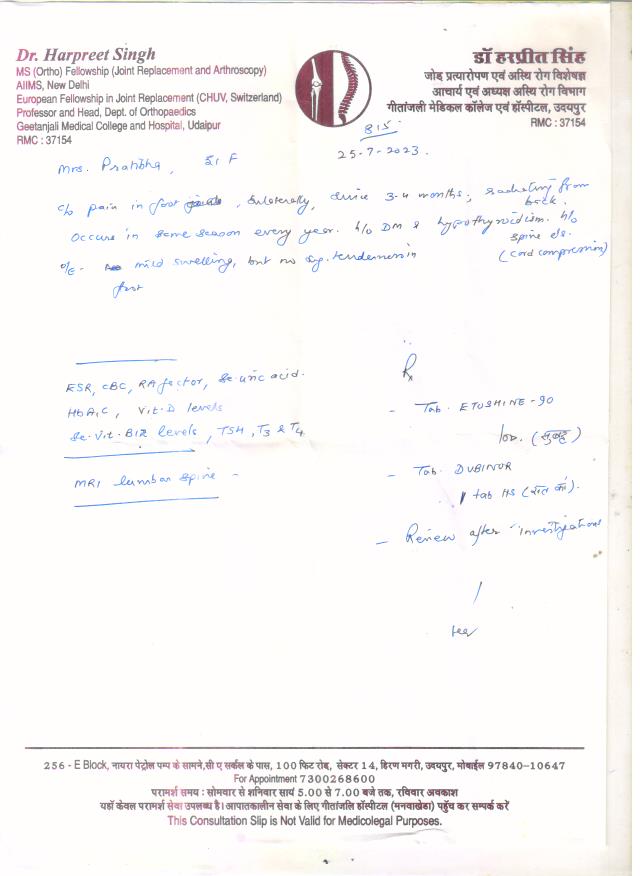 Dr. Harpreet Singh
MS (Ortho) Fellowship (Joint Replacement and Arthroscopy)
AIIMS, New Delhi
European Fellowship in Joint Replacement (CHUV, Switzerland)
Professor and Head, Dept. of Orthopaedics
Geetanjali Medical College and Hospital, Udaipur
RMC : 37154
डॉ हरप्रीत सिंह
जोड़ प्रत्यारोपण एवं अस्थि रोग विशेषज्ञ
आचार्य एवं अध्यक्ष अस्थि रोग विभाग
गीतांजली मेडिकल कॉलेज एवं हॉस्पीटल, उदयपुर
RMC : 37154
815
25-7-2023.
Mrs. Pratibha, F
c/o pain in foot, bilaterally, since 3-4 months; radiating from back.
Occurs in same season every year. h/o DM & hypothyroidism. h/o spine ds.
(cord compression)
o/e- mild swelling, but no sig. tenderness in
foot
ESR, CBC, RA factor, Se. uric acid.
HbA1C, Vit. D levels
Se. Vit. B12 levels, TSH, T3 & T4
MRI lumbar spine -
Rx
- Tab. ETOSHINE-90
1 OD. (सुबह)
- Tab. DUBINOR
1 tab HS (रात को).
- Review after investigations
256 - E Block, नायरा पेट्रोल पम्प के सामने, सी ए सर्कल के पास, 100 फिट रोड, सेक्टर 14, हिरण मगरी, उदयपुर, मोबाईल 97840-10647
For Appointment 7300268600
परामर्श समय : सोमवार से शनिवार सायं 5.00 से 7.00 बजे तक, रविवार अवकाश
यहाँ केवल परामर्श सेवा उपलब्ध है। आपातकालीन सेवा के लिए गीतांजलि हॉस्पीटल (मनवाखेडा) पहुँच कर सम्पर्क करें
This Consultation Slip is Not Valid for Medicolegal Purposes.